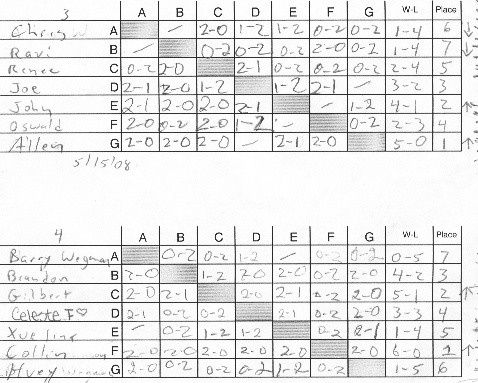 3 A B C D E F G W-L Place
Cheryn A / 2-0 1-2 1-2 0-2 0-2 1-4 6 ↓
Ravi B / 0-2 0-2 0-2 2-0 0-2 1-4 7 ↓
Renee C 0-2 2-0 2-1 0-2 0-2 0-2 2-4 5
Joe D 2-1 2-0 1-2 1-2 2-1 / 3-2 3
John E 2-1 2-0 2-0 2-1 / 1-2 4-1 2 ↑
Oswald F 2-0 0-2 2-0 1-2 / 0-2 2-3 4
Allen G 2-0 2-0 2-0 / 2-1 2-0 5-0 1 ↑
5/15/08
4 A B C D E F G W-L Place
Barry Wegman A 0-2 0-2 1-2 / 0-2 0-2 0-5 7
Brandon B 2-0 1-2 2-0 2-0 0-2 2-0 4-2 3
Gilbert C 2-0 2-1 2-0 2-1 0-2 2-0 5-1 2 ↑
Celeste F ♡ D 2-1 0-2 0-2 2-1 0-2 2-0 3-3 4
Xue ling E / 0-2 1-2 1-2 0-2 2-1 1-4 5
Collin F 2-0 2-0 2-0 2-0 2-0 2-0 6-0 1 ↑
Alvey G 2-0 0-2 0-2 0-2 1-2 0-2 1-5 6